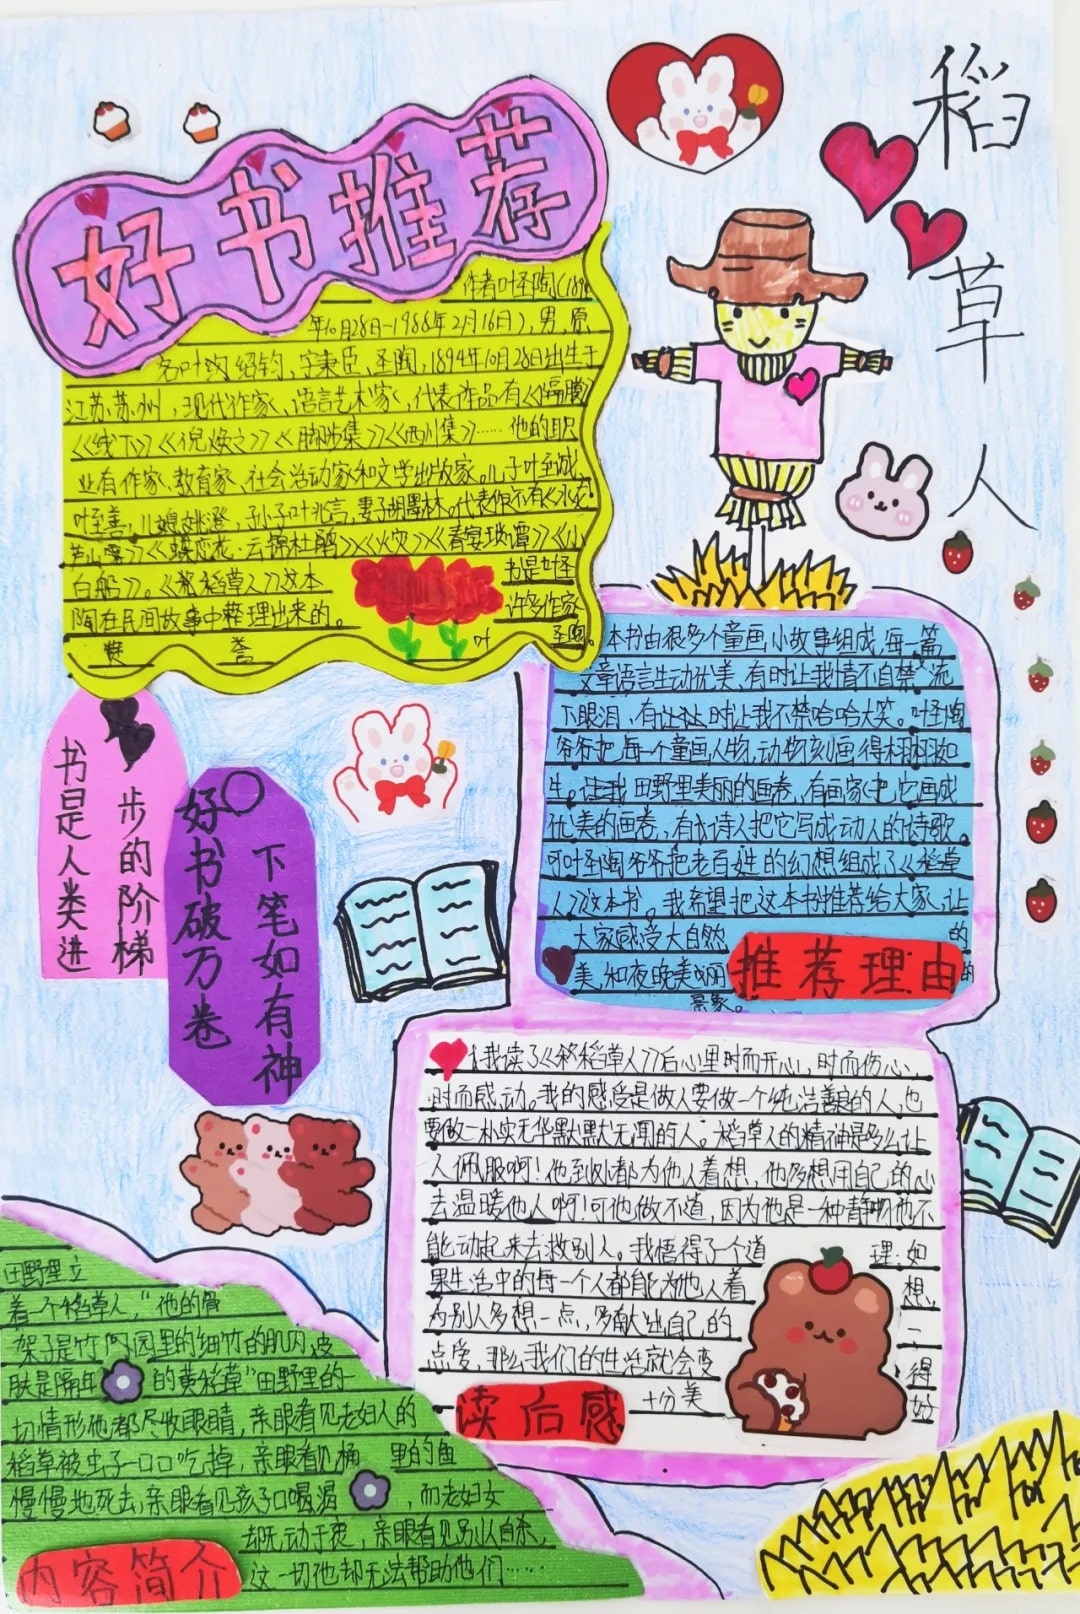 好书推荐
稻草人
作者叶圣陶(1894
年10月28日-1988年2月16日),男,原
名叶绍钧、字秉臣、圣陶,1894年10月28日出生于
江苏苏州,现代作家、语言艺术家,代表作品有《隔膜》
《线下》《倪焕之》《脚步集》《西川集》……他的职
业有作家、教育家、社会活动家和文学出版家。儿子叶至诚、
叶至善,儿媳姚澄,孙子叶兆言,妻子胡墨林。代表作有
《小
白船》。《稻草人》这本 书是叶圣
陶在民间故事中整理出来的。 许多作家
赞 誉 叶 圣陶。
书是人类进
步的阶梯
好书破万卷
下笔如有神
本书由很多个童画小故事组成,每一篇
文章语言生动优美、有时让我情不自禁流
下眼泪,有让让时让我不禁哈哈大笑。叶圣陶
爷爷把每一个童画人物,动物刻画得栩栩如
生。让我田野里美丽的画卷、有画家把它画成
优美的画卷,有诗人把它写成动人的诗歌。
可叶圣陶爷爷把老百姓的幻想组成了《稻草
人》这本书。我希望把这本书推荐给大家,让
大家感受大自然 的
美,和夜晚美丽 的
景象。
推荐理由
我读了《稻草人》后心里时而开心,时而伤心、
时而感动。我的感受是做人要做一个纯洁善良的人,也
要做一朴实无华默默无闻的人。稻草人的精神是多么让
人佩服啊!他到处都为他人着想,他多想用自己的心
去温暖他人啊!可他做不道,因为他是一种静物他不
能动起来去救别人。我悟得了一个道 理:如
果生活中的每一个人都能为他人着 想,
为别人多想一点,多献出自己的 一
点爱,那么我们的生活就会变 得
十分美 好
读后感
田野里立
着一个稻草人,“他的骨
架子是竹园里的细竹的肌肉、皮
肤是隔年 的黄稻草”田野里的一
切情形他都尽收眼睛,亲眼看见老妇人的
稻草被虫子一口口吃掉,亲眼看见桶 里的鱼
慢慢地死去,亲眼看见孩子口喝渴 ,而老妇女
却无动于衷,亲眼看见别人自杀,
这一切他却无法帮助他们……
内容简介